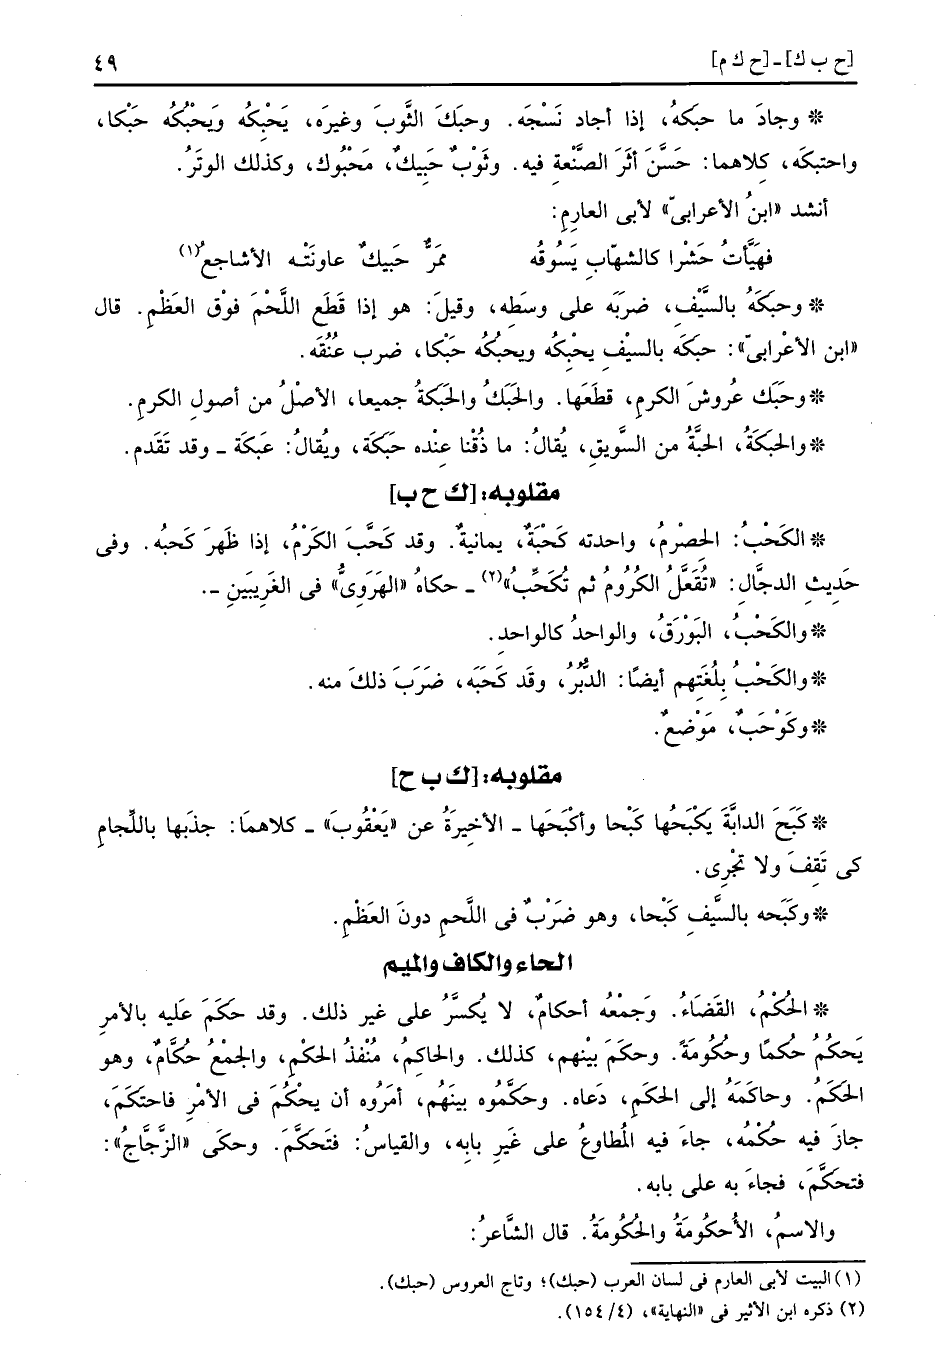 [ح ب ك] ـ [ح ك م]
٤٩
* وجادَ ما حَبَكهُ، إذا أجاد نَسْجَه. وحبَكَ الثَّوبَ وغيرَه، يَحْبِكُه ويَحْبُكُه حَبْكا،
واحتبكَه، كلاهما: حَسَّنَ أثَرَ الصَّنْعةِ فيه. وثَوْبٌ حَبِيكٌ، مَحْبُوك، وكذلك الوترُ.
أنشد «ابنُ الأعرابىّ» لأبى العارمِ:
فهَيَّأتُ حَشْرا كالشهّابِ يَسُوقُه ممَرٌّ حَبيكٌ عاونَتْـه الأشاجـعُ(١)
* وحبَكَهُ بالسَّيْفِ، ضربَه على وسَطِه، وقيلَ: هو إذا قَطَع اللَّحْمَ فوْق العَظْمِ. قال
«ابن الأعْرابىّ»: حبَكَه بالسيْفِ يحْبِكُه ويحبُكُه حَبْكا، ضرب عنُقَه.
*وحَبَك عُروشَ الكرمِ، قطَعَها. والحَبَكُ والحَبَكةُ جميعا، الأصْلُ من أصولِ الكرمِ.
*والحَبَكَةُ، الحبَّةُ من السَّويقِ، يُقالُ: ما ذُقْنا عِنْده حَبَكة، ويُقالُ: عَبَكة ـ وقد تَقَدم.
مقلوبه: [ك ح ب]
*الكَحْبُ: الحِصْرِمُ، واحدته كَحْبَةٌ، يمانيةٌ. وقد كَحَّبَ الكَرْمُ، إذا ظهرَ كَحبُه. وفى
حَديثِ الدجَّالِ: «تُقَعَّلُ الكرُومُ ثم تُكَحِّبُ»(٢) ـ حكاهُ «الهَرَوِىُّ» فى الغَرِيبَينِ ـ.
*والكَحْبُ، البَوْرَقُ، والواحدُ كالواحدِ.
*والكَحْبُ بلُغَتِهم أيضًا: الدُّبُرُ، وقد كَحَبَه، ضرَبَ ذلكَ منه.
*وكَوْحَبٌ، مَوْضعٌ.
مقلوبه: [ك ب ح]
*كَبَحَ الدابَّةَ يَكْبَحُها كَبْحا وأكْبَحَها ـ الأخيرَةُ عن «يَعْقُوبَ» ـ كلاهمَا: جذبَها باللِّجامِ
كى تَقِفَ ولا تجْرِى.
*وكَبَحه بالسَّيفِ كَبْحا، وهو ضَرْبٌ فى اللَّحمِ دونَ العَظْمِ.
الحاء والكاف والميم
* الحُكْمُ، القَضَاءُ. وَجَمْعُه أحكامٌ، لا يُكسَّرُ على غير ذلك. وقد حكَمَ عَليه بالأمرِ
يَحكُمُ حُكمًا وحُكُومَةً. وحكَمَ بيْنهم، كذلك. والحاكِمُ، مُنْفذُ الحكْمِ، والجمْعُ حُكَّامٌ، وهو
الحَكَمُ. وحاكَمَهُ إلى الحَكَمِ، دَعاه. وحكَّمُوه بينَهُم، أمَرُوه أن يحْكُمَ فى الأمْرِ فاحتَكَمَ،
جازَ فيه حكْمُه، جاءَ فيه المُطاوعُ على غَيرِ بابِه، والقياسُ: فتَحكَّمَ. وحكَى «الزَّجَّاجُ»:
فتحكَّمَ، فجاءَ به على بابه.
والاسمُ، الأُحكُومَةُ والحُكُومَةُ. قال الشَّاعرُ:
(١) البيت لأبى العارم فى لسان العرب (حبك)؛ وتاج العروس (حبك).
(٢) ذكره ابن الأثير فى «النهاية»، (٤/ ١٥٤).